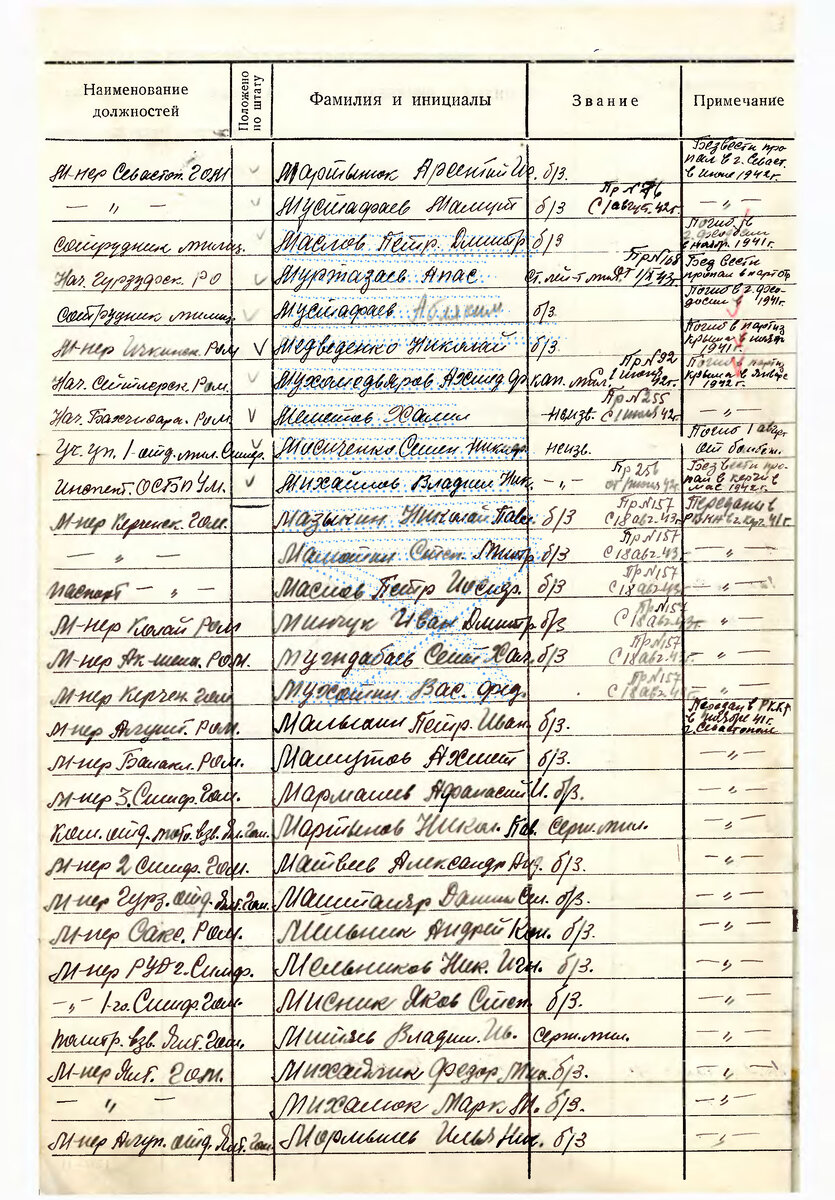 Наименование должностей | Положено по штату | Фамилия и инициалы | Звание | Примечание
М-нер Севастоп. ГОМ | Мартынюк Арсентий | б/з. | Без вести пропал в г. Севаст. в июне 1942 г.
— " — | Мустафаев | б/з | Пр N 76 с 1 август. 42 г. | — " —
Сотрудник милиц. | Маслов Петр Дмитр | б/з | Погиб в г. Феодосии в ноябр. 1941 г.
Нач. Гурзуфск. РО | Муртазаев Апас | Ст. лей-т мил. | Пр N 168 | Без вести пропал в партот.
Сотрудник милиц. | Мустафаев | б/з. | Погиб в г. Феодосии в 1941 г.
М-нер Ичкинск. РОМ | Медведенко Николай | б/з. | Погиб в партиз Крыма в ноябр 1941 г.
Нач. Сейтлерск. РОМ. | Мухамедьяров Ахмед | кап. мил. | Пр N 92 1 июня 42 г. | Погиб в партиз Крыма в январе 1942 г.
Нач. Бахчисара. РОМ. | Меметов Халил | неизв. | Пр N 255 с 1 июля 42 г. | — " —
Уч. уп. 1-отд. мил. Симф. | Мосиченко Семен Никифр. | неизв. | Погиб 1 август от бомбеж.
Инспект. ОСВПУМ. | Михайлов Владим Ник. | — " — | Пр 256 | Без вести пропал в Керчи в мае 1942 г.
М-нер Керченск. Гом. | Мазыкин Николай Павл. | б/з | Пр N 157 с 18 авг. 43 г. | Переданы в РВМН в г. Кер. 41 г.
— " — | Мамоткин Степ. Дмитр | б/з | Пр N 157 с 18 авг. 43 | — " —
Паспорт — " — | Маслов Петр Иосиф. | б/з | Пр N 157 с 18 авг 43 | — " —
М-нер Колай РОМ | Минчук Иван Дмитр | б/з | Пр N 157 с 18 авг. 43 г. | — " —
М-нер Ак-шеих. РОМ. | Мугидабаев Сеит Хал. | б/з | Пр N 157 с 18 авг. 43 г. | — " —
М-нер Керчен. Гом | Мухоткин Вас. Фед. | Пр N 157 с 18 авг. 43 г. | — " —
М-нер Алушт. РОМ. | Малыгин Петр. Иван. | б/з. | Передан в РККА в ноябре 41 г. г. Севастополь
М-нер Балакл. РОМ. | Мамутов Ахмет | б/з. | — " —
М-нер 3. Симф. Гом. | Мармашев Афанасий И. | б/з. | — " —
Ком. отд. мото. взв. Ял. Гом. | Мартынов Никол. Пав. | Серж. мил. | — " —
М-нер 2 Симф. Гом. | Матвеев Александр Анд. | б/з. | — " —
М-нер Гурз. отд. Ял. Гом. | Машталяр Данил Сем. | б/з. | — " —
М-нер Сакс. РОМ. | Мельник Андрей Кон. | б/з. | — " —
М-нер РУД г. Симф. | Мельников Ник. Игн. | б/з. | — " —
— " — 1-го. Симф. Гом. | Мисник Яков Степ. | б/з. | — " —
Политр. взв. Ялт. Гом. | Митяев Владим. Ив. | Серж. мил. | — " —
М-нер Ялт. ГОМ. | Михайлик Федор Мих. | б/з. | — " —
— " — | Михалюк Марк М. | б/з. | — " —
М-нер Алуп. отд. Ялт. Гом. | Мормышев Илья Ник. | б/з | — " —